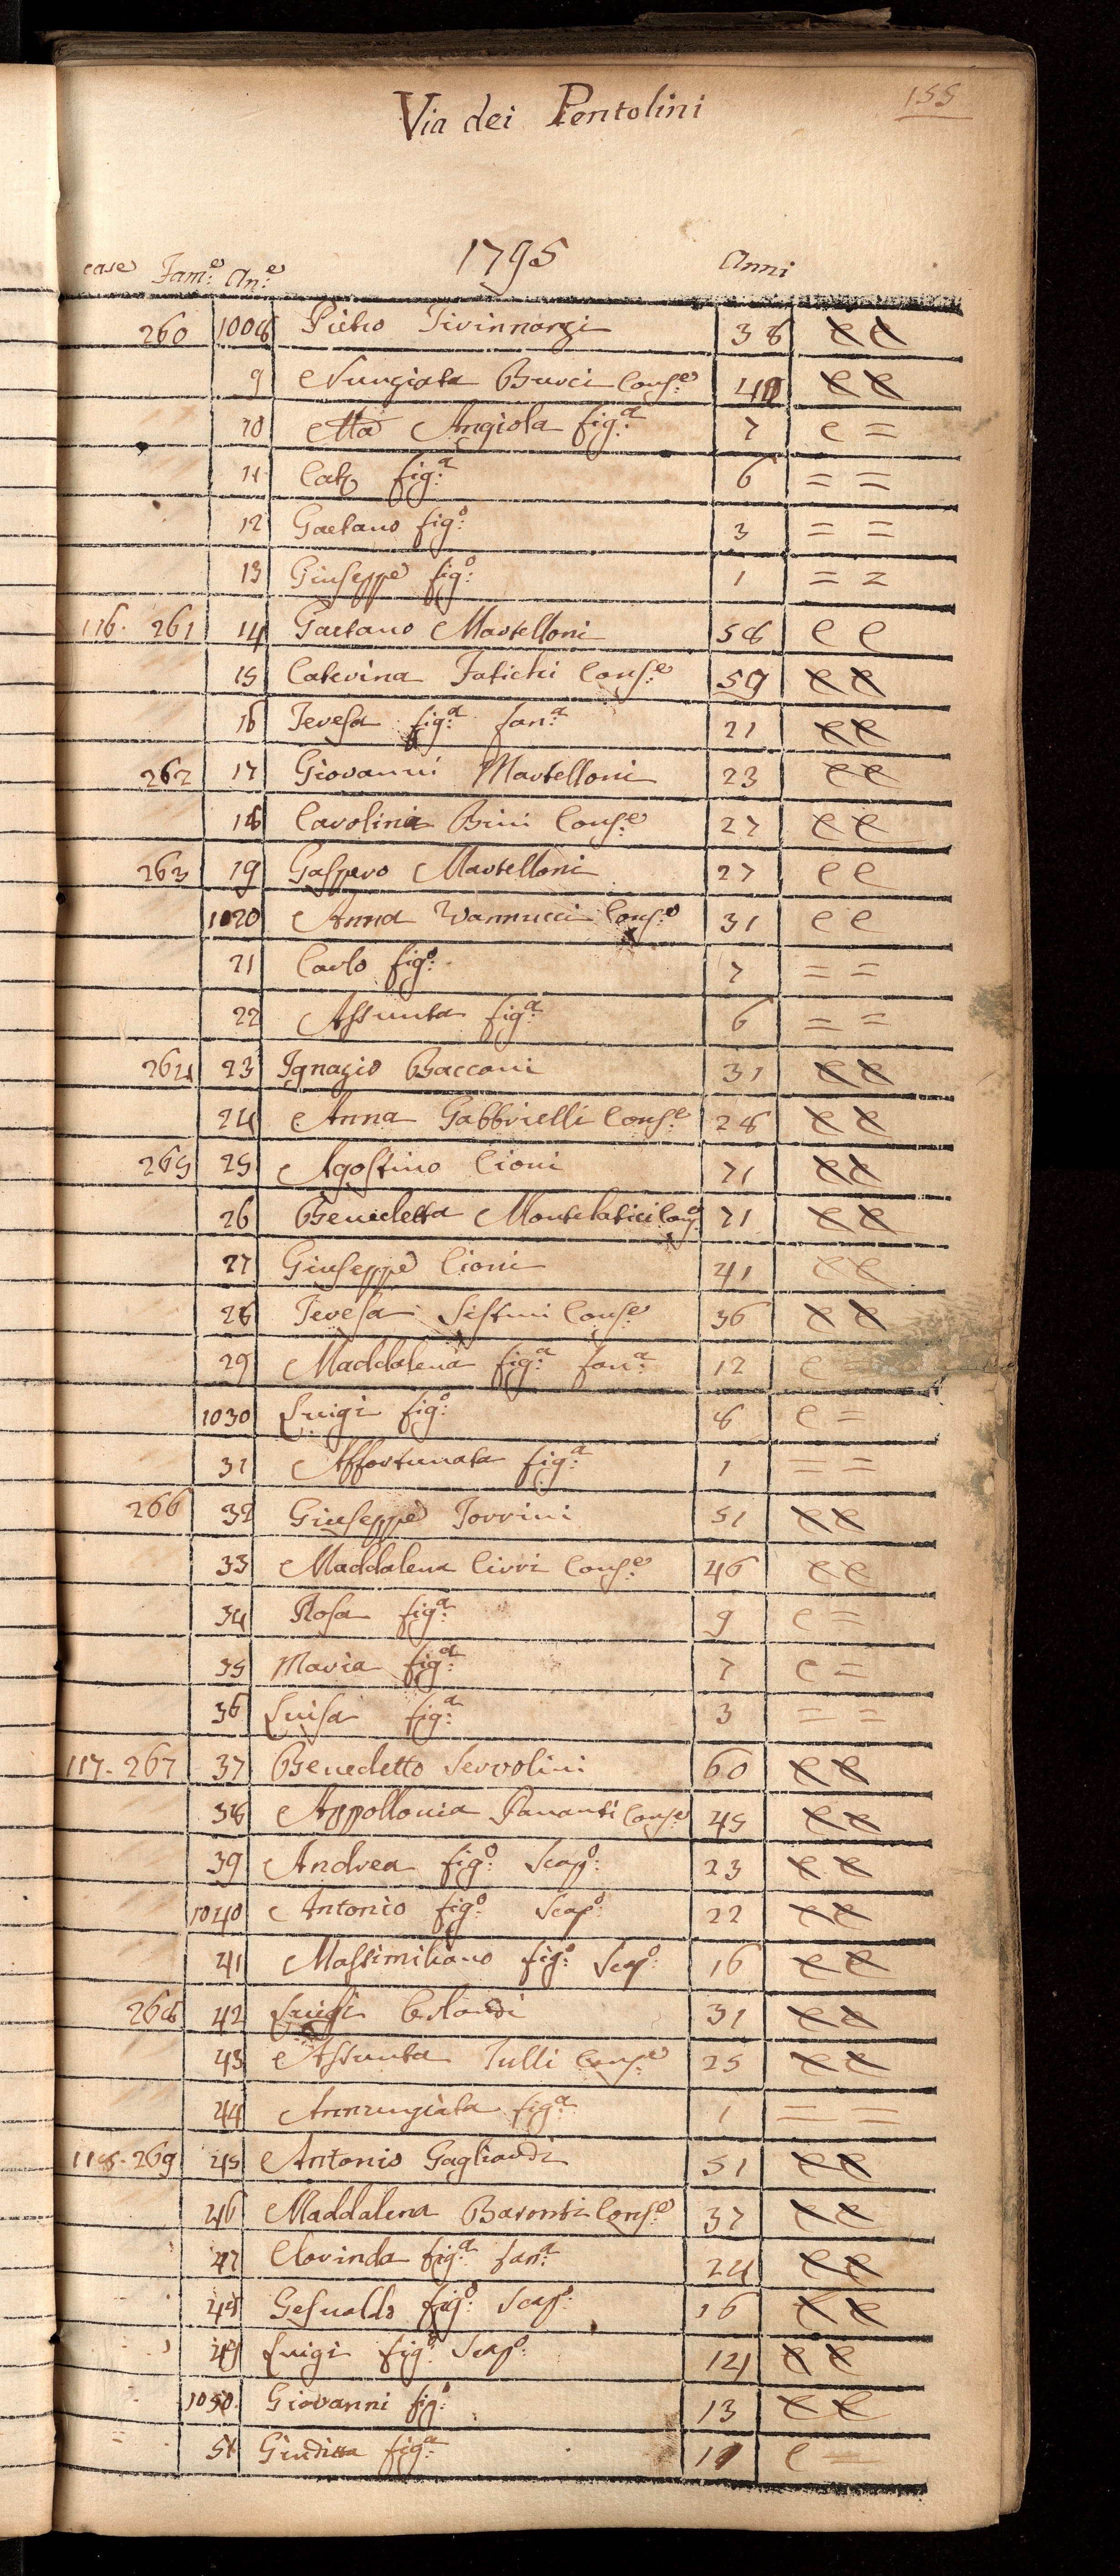 155
Via dei Pentolini
1795
case Fam.e An.e Anni
260 1008 Pietro 38 e e
9 Nunziata Bucci Cons.e e e
10 Ma Angiola fig.a 7 e =
11 Cat.a fig.a 6 = =
12 Gaetano fig.o 3 = =
13 Giuseppe fig.o 1 = =
116. 261 14 Gaetano Martelloni 58 e e
15 Caterina Fatichi Cons.e 59 e e
16 Teresa fig.a fan.a 21 e e
262 17 Giovanni Martelloni 23 e e
18 Carolina Bini Cons.e 27 e e
263 19 Gaspero Martelloni 27 e e
1020 Anna Vannucci Cons.e 31 e e
21 Carlo fig.o 7 = =
22 Assunta fig.a 6 = =
264 23 Ignazio Bacconi 31 e e
24 Anna Gabbrielli Cons.e 28 e e
265 25 Agostino Cioni 71 e e
26 Benedetta Montelatici Cons.e 71 e e
27 Giuseppe Cioni 41 e e
28 Teresa Sestini Cons.e 36 e e
29 Maddalena fig.a fan.a 12 e =
1030 Luigi fig.o 8 e =
31 Affortunata fig.a 1 = =
266 32 Giuseppe Torrini 51 e e
33 Maddalena Cirri Cons.e 46 e e
34 Rosa fig.a 9 e =
35 Maria fig.a 7 e =
36 Luisa fig.a 3 = =
117. 267 37 Benedetto Servolini 60 e e
38 Appollonia Pananti Cons.e 45 e e
39 Andrea fig.o Scap.o 23 e e
1040 Antonio fig.o Scap.o 22 e e
41 Massimiliano fig.o Scap.o 16 e e
268 42 Luigi 31 e e
43 Assunta Tulli Cons.e 25 e e
44 Annunziata fig.a 1 = =
118. 269 45 Antonio Gagliardi 51 e e
46 Maddalena Baronti Cons.e 37 e e
47 Clorinda fig.a fan.a 24 e e
48 Gesualdo fig.o Scap.o 16 e e
49 Luigi fig.o Scap.o 14 e e
1050 Giovanni fig.o 13 e e
51 Giuditta fig.a e =